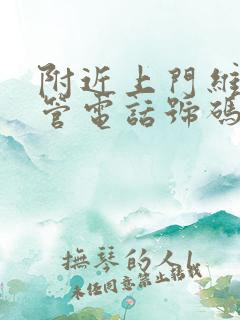 附近上門維
管電話號碼
撫琴的人l
未经同意禁止转载